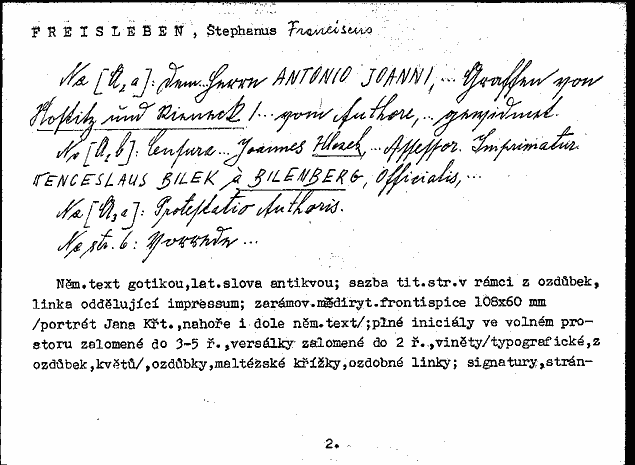 FREISLEBEN, Stephanus Franciscus
Na [A2a]: Dem Herrn ANTONIO JOANNI,... Graffen von
Nostitz und Rieneck /... vom Authore,.. gewidmet.
Na [A2b]: Censura... Joannes Hlasek,... Assessor. Imprimatur.
WENCESLAUS BILEK à BILENBERG, Officialis,...
Na [A3a]: Protestatio Authoris.
Na str. 6: Vorrede ...
Něm.text gotikou,lat.slova antikvou; sazba tit.str.v rámci z ozdůbek,
linka oddělující impressum; zarámov.mědiryt.frontispice 108x60 mm
/portrét Jana Křt.,nahoře i dole něm.text/;plné iniciály ve volném pro-
storu zalomené do 3-5 ř.,versálky zalomené do 2 ř.,viněty/typografické,z
ozdůbek,květů/,ozdůbky,maltézské křížky,ozdobné linky; signatury,strán-
2.